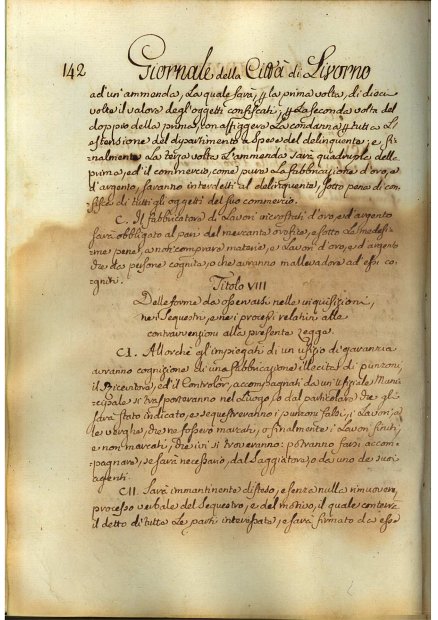 142 Giornale della Città di Livorno
ad un'ammenda, la quale sarà, p la prima volta, di dieci
volte il valore degl'oggetti confiscati; p la seconda volta del
doppio della prima, con affiggere la condanna p tutta l'e
stensione del dipartimento a spese del delinquente; e fi
nalmente la terza volta l'ammenda sarà quadrupla della
prima, ed il commercio, come pure la fabbricazione d'oro, e
d'argento, saranno interdetti al delinquente, sotto pena di con
fisca di tutti gli oggetti del suo commercio.
C. Il fabbricatore di lavori incrostati d'oro, ed argento
sarà obbligato al pari del mercante orefice, e sotto le medesi
me pene, a non comprare materie, e lavori d'oro, ed argento
che da persone cognite, o che avranno mallevadore ad essi co
gniti.
Titolo VIII
Delle forme da osservarsi nelle inquisizioni,
nei sequestri, e nei processi relativi alle
contravvenzioni alla presente legge.
CI. Allorchè gli impiegati di un ufizio di garanzia
avranno cognizione di una fabbricazione illecita di punzoni,
il Ricevitore, ed il Controlor, accompagnati da un'ufiziale Muni
cipale si trasporteranno nel luogo, o dal particolare che gli
sarà stato indicato, e sequestreranno i punzoni falsi, i lavori, e
le verghe, che ne fossero marcati, o finalmente i lavori finiti,
e non marcati, che ivi si troveranno: potranno farsi accom
pagnare, se sarà necessario, dal saggiatore, o da uno de' suoi
agenti.
CII. Sarà immantinente disteso, e senza nulla rimuovere,
processo verbale del sequestro, e del motivo, il quale conterrà
il detto di tutte le parti interessate, e sarà firmato da esse